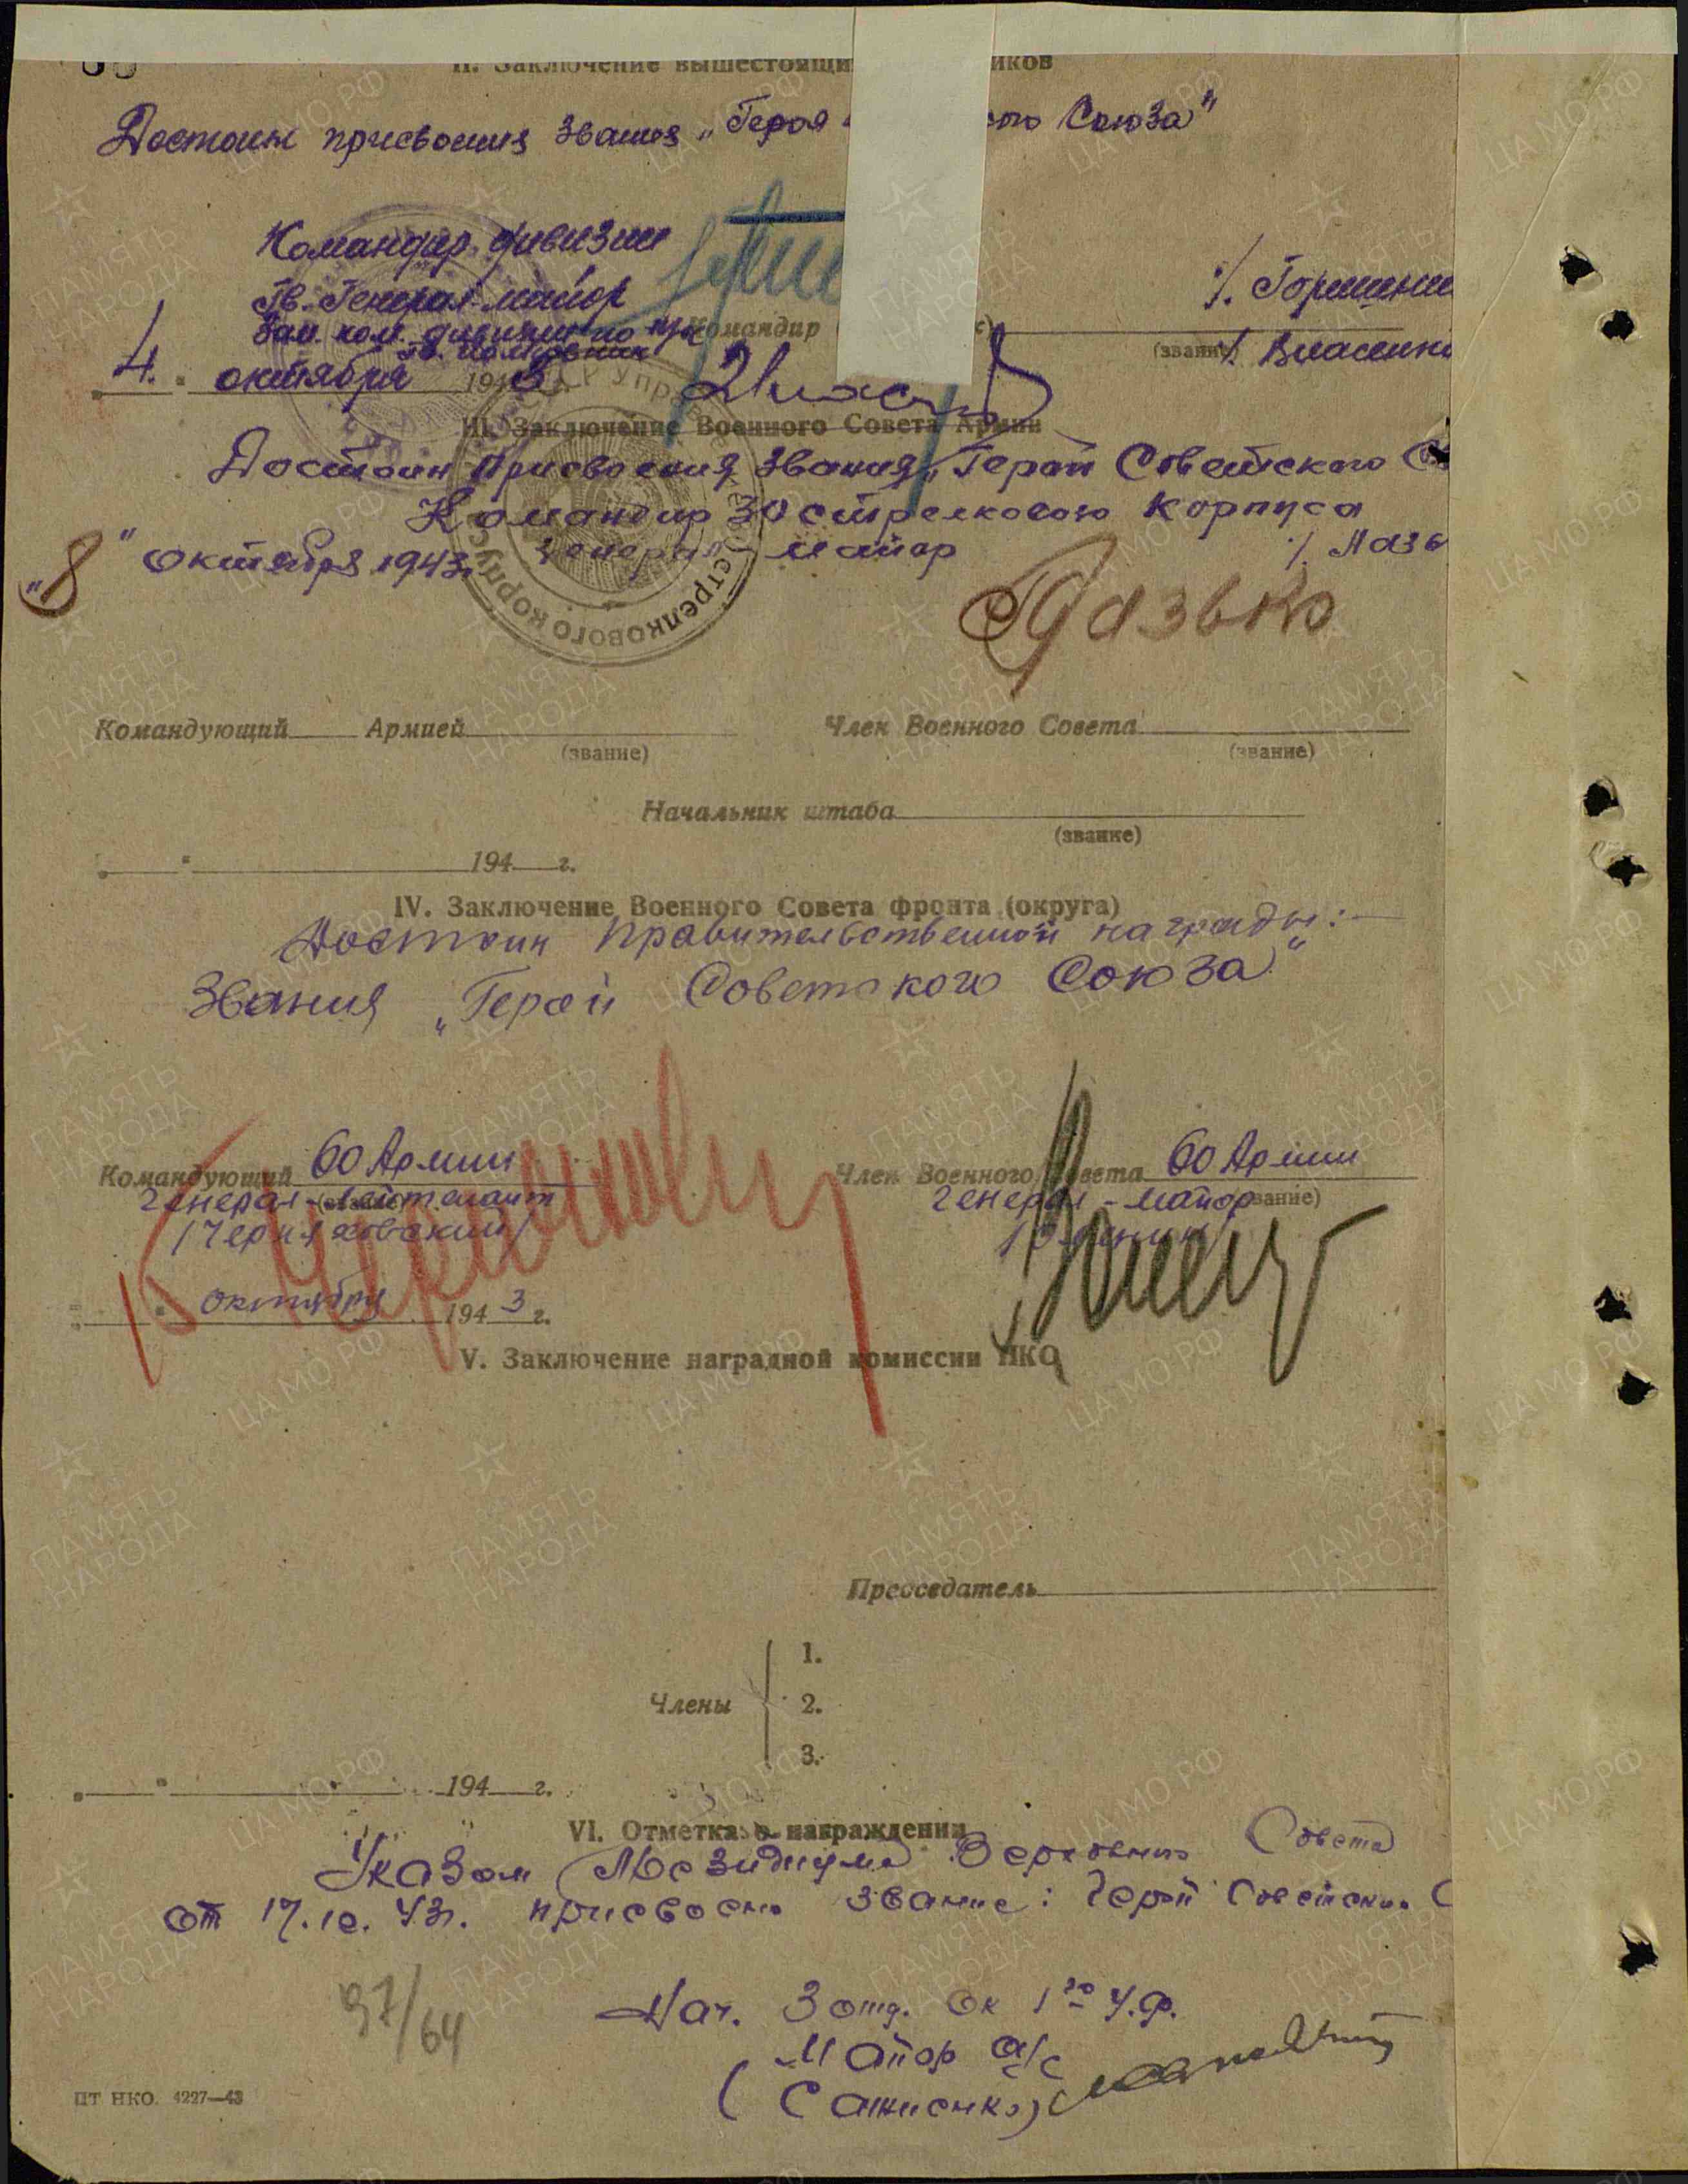 II. Заключение вышестоящи иков
Достоин присвоения звания „Героя ского Союза"
Командир дивизии
Гв. Генерал-майор /. Горишни
Зам. ком. дивизии по п/ч Командир
гв. полковник (звание) /. Власенко
4. октября 1943
III. Заключение Военного Совета Армии
Достоин присвоения звания „Герой Советского С
Командир 30 стрелкового корпуса
„8" октября 1943г. генерал-майор /. Лазь
Лазько
стрелкового корпуса
Командующий Армией Член Военного Совета
(звание) (звание)
Начальник штаба
(звание)
194 г.
IV. Заключение Военного Совета фронта (округа)
Достоин правительственной награды:-
Звания „Герой Советского Союза"
Командующий 60 Армии Член Военного Совета 60 Армии
генерал-лейтенант (звание) генерал-майор (звание)
/Черняховский/
15 октября 1943 г.
V. Заключение наградной комиссии НКО
Председатель
1.
Члены 2.
3.
194 г.
VI. Отметка о награждении
Указом Президиума Верховного Совета
от 17.10.43г. присвоено звание: Герой Советского С
Нач. 3 отд. ОК 1го У.Ф.
37/64
Майор а/с
ПТ НКО. 4227—43
ПАМЯТЬ НАРОДА
ЦАМО.РФ